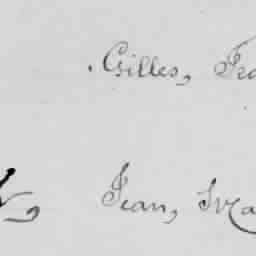 Gilles, Fra
Jean, Ma